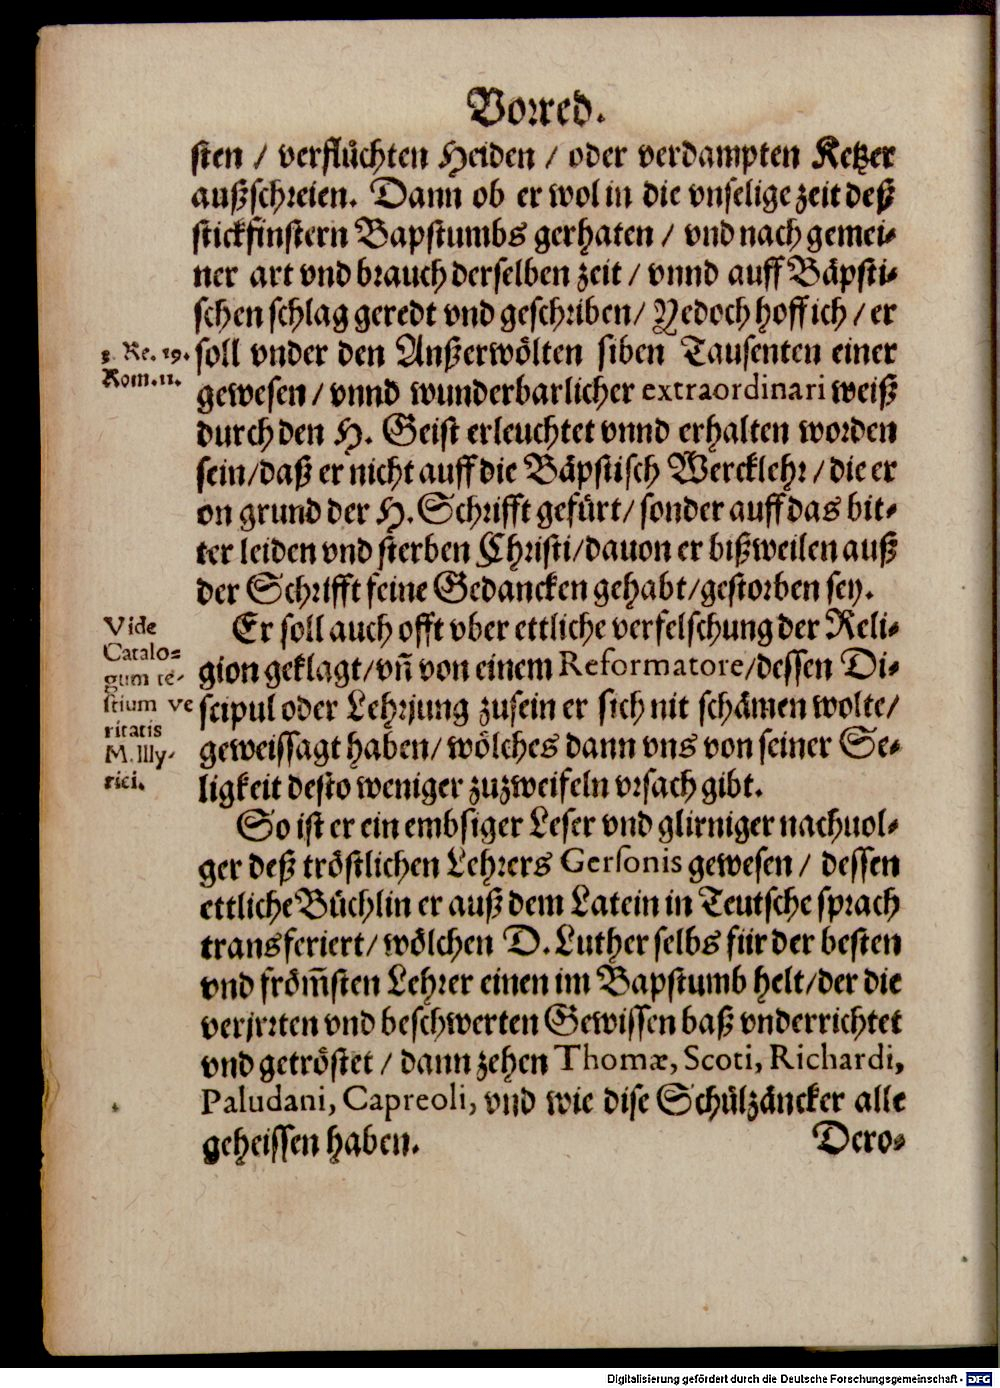 Vorred.
sten / verflüchten Heiden / oder verdampten Ketzer
außschreien. Dann ob er wol in die vnselige zeit deß
stickfinstern Bapstumbs gerhaten / vnd nach gemei-
ner art vnd brauch derselben zeit / vnnd auff Bäpsti-
schen schlag geredt vnd geschriben / Yedoch hoff ich / er
3. Re. 19.
Rom. 11.
soll vnder den Außerwölten siben Tausenten einer
gewesen / vnnd wunderbarlicher extraordinari weiß
durch den H. Geist erleuchtet vnnd erhalten worden
sein / daß er nicht auff die Bäpstisch Wercklehr / die er
on grund der H. Schrifft gefürt / sonder auff das bit-
ter leiden vnd sterben Christi / dauon er bißweilen auß
der Schrifft feine Gedancken gehabt / gestorben sey.
Vide
Catalo-
gum te-
stium ve
ritatis
M. Illy-
rici.
Er soll auch offt vber ettliche verfelschung der Reli-
gion geklagt / vñ von einem Reformatore / dessen Di-
scipul oder Lehrjung zusein er sich nit schämen wolte /
geweissagt haben / wölches dann vns von seiner Se-
ligkeit desto weniger zuzweifeln vrsach gibt.
So ist er ein embsiger Leser vnd glirniger nachuol-
ger deß tröstlichen Lehrers Gersonis gewesen / dessen
ettliche Büchlin er auß dem Latein in Teutsche sprach
transferiert / wölchen D. Luther selbs für der besten
vnd fröm̃sten Lehrer einen im Bapstumb helt / der die
verjrrten vnd beschwerten Gewissen baß vnderrichtet
vnd getröstet / dann zehen Thomæ, Scoti, Richardi,
Paludani, Capreoli, vnd wie dise Schülzäncker alle
geheissen haben.
Dero-
Digitalisierung gefördert durch die Deutsche Forschungsgemeinschaft - DFG